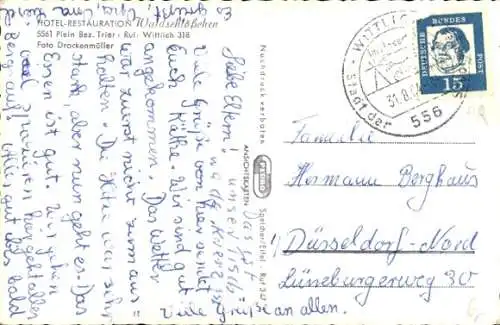 HOTEL-RESTAURATION Waldschlößchen
5561 Plein Bez. Trier · Ruf: Wittlich 318
Foto Drockenmüller
Liebe Eltern!
Viele Grüße von hier sendet
Euch Käthe. Wir sind gut
angekommen. Das Wetter
war zuerst nicht zum aus=
halten. Die Hitze war sehr
stark, aber nun geht es. Das
Essen ist gut. Wir gehen
viel spazieren
Berg auf
Viele Grüße an allen.
Das ist
unser Tisch
Nachdruck verboten
ANSICHTSKARTEN
Speicher/Eifel · Ruf 347
WITTLICH
31.8.
Stadt der
556
DEUTSCHE BUNDESPOST
15
Familie
Hermann Berghaus
Düsseldorf-Nord
Lüneburgerweg 30